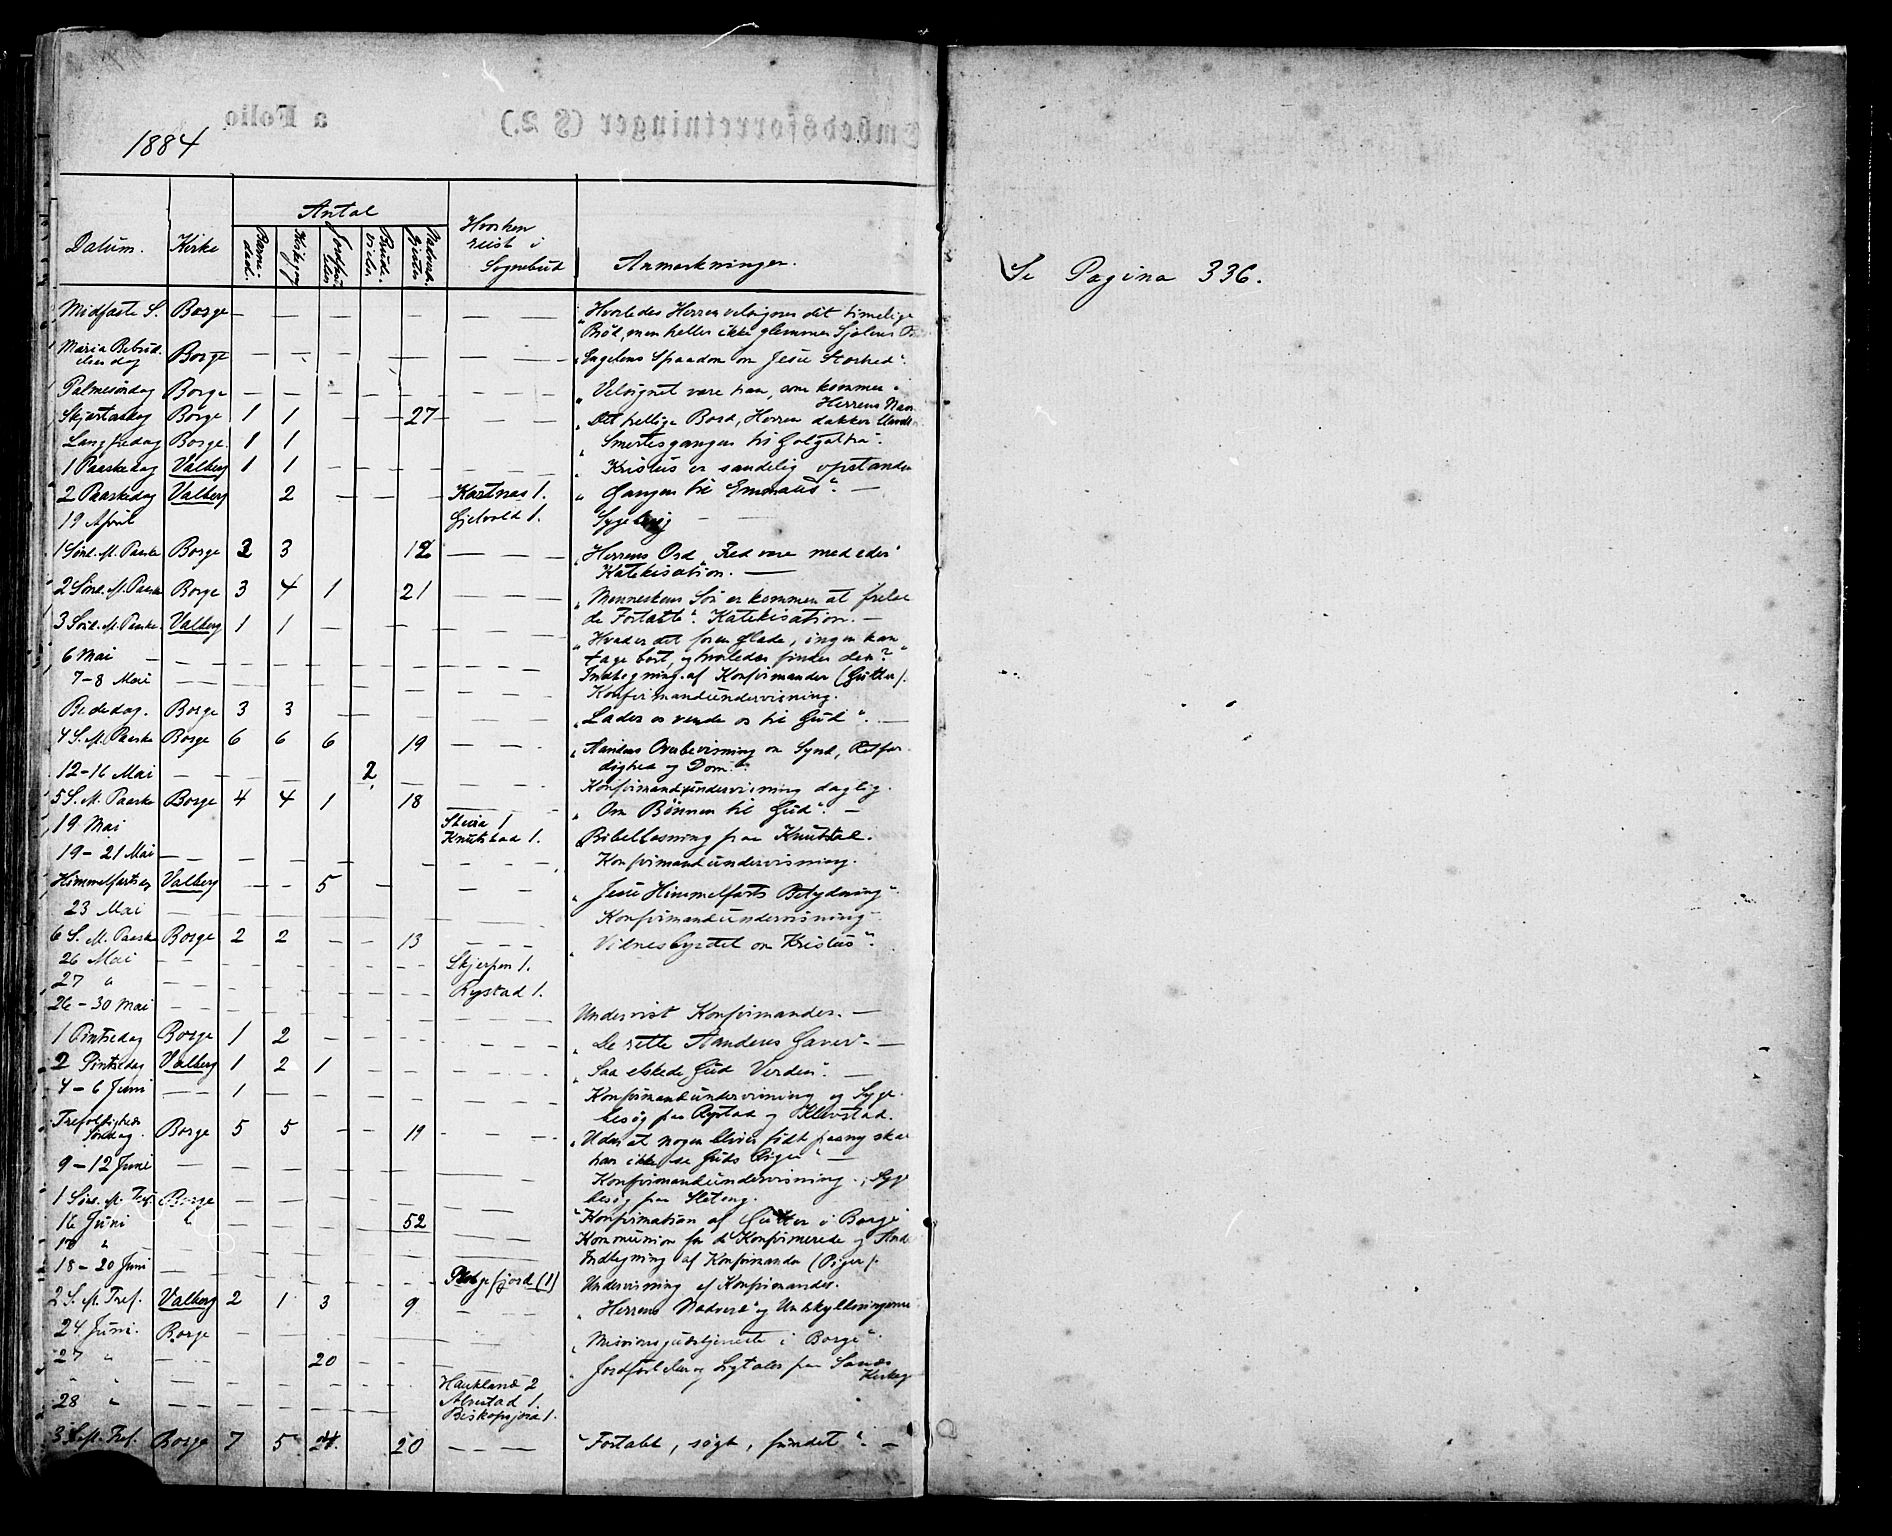 1884
Antal
Datum. Kirke Barne daab. Kirkegang Jordfæstelser Brude vielser Nadverd. Gjæster Hvorhen reist i Sognebud Anmærkninger.
Midfaste S. Borge — — — — — — — — "Hvorledes Herren velsigner det timelige
Brød, men heller ikke glemmer Sjælens
Maria Bebud. elses dag Borge — — — — — — — — "Engelens Spaadom om Jesu Storhed".
Palmesøndag Borge — — — — — — — — "Velsignet være han, som kommer i
Herrens Navn
Skjærtorsdag Borge 1 1 — — 27 — — — "Det hellige Bord, Herren dækker
Langfredag Borge. 1 1 "Smertesgangen til Golgatha".
1 Paaskedag Valberg 1 1 — — — — — — "Kristus er sandelig opstanden
2 Paaskedag Valberg 2 — — — Kartnæs 1. "Gangen til Emmaus". —
19 April Gjelvold 1. Sygebesøg — —
1 Sønd. M. Paaske Borge 3 3 12 — — — "Herrens Ord "Fred være med eder"
Katekisation. —
2 Sønd. M. Paaske Borge 3 4 1 21 — — — "Menneskens Søn er kommen at frelse
de Fortabte". Katekisation. —
3 Sønd. M. Paaske. Valberg 1 1 — — — — — — "Hvad er det for en Glæde, ingen kan
tage bort, og hvorledes findes den?"
6 Mai — — — — — — — — — Indtegning af Konfirmander (Gutter).
7-8 Mai — — — — — — — — Konfirmandundervisning.
Bededag. Borge 3 3 — — — — — — "Lader os vende os til Gud". —
4 S. M. Paaske Borge 6 6 6 19 — — — "Aandens Overbevisning om Synd, Retfær
dighed og Dom".
12-16 Mai — — — — 2 — — — — Konfirmandundervisning daglig.
5 S. M. Paaske Borge 4 4 1 18 — — — "Om Bønnen til Gud". —
19 Mai Steira 1
Knutstad 1. Bibellæsning paa Knutstad.
19-21 Mai — — — — — — — — Konfirmandundervisning.
Himmelfartsdag Valberg — — 5 — — — — "Jesu Himmelfarts Betydning"
23 Mai — — — — — — — — Konfirmandundervisning
6 S. M. Paaske Borge 2 2 — — 13 — — — "Vidnesbyrdet om Kristus".
26 Mai — — — — — — — Skjerpen 1.
27 " — — — — — — Rystad 1.
26-30 Mai — — — — — — — — Undervist Konfirmander. —
1 Pintsedag Borge 1 2 — — — — — — "De rette Aandens Gaver" —
2 Pintsedag Valberg 1 2 1 — — — — — "Saa elskede Gud Verden". —
4-6 Juni — — 1 — — — — — — Konfirmandundervisning og Syge
besøg paa Rystad og Klevstad.
Trefoldigheds Søndag. Borge 5 5 — — 19 — — — "Uden at nogen bliver født paany kan
han ikke se Guds Rige" —
9-12 Juni — — — — — — — — Konfirmandundervisning. Syge
besøg paa
1 Sønd. M. Tref. Borge — — — — — — — — "Konfirmation af Gutter i Borge
16 Juni " — — — — 52 — — — Kommunion for de Konfirmerede og
17 " — — — — — — — — Indtegning af Konfirmander (Piger).
18-20 Juni — — — — — — — fjord (1) Undervisning af Konfirmander.
2 S. M. Tref. Valberg 2 1 3 9 — — "Herrens Nadvere" og Undskyldningerne
24 Juni. Borge — — — — — — — — "Missionsgudstjeneste i Borge".
27 " — — 20 — — — — — Jordfæstelser og Ligtaler paa
" " — — — — — — Haukland 2
28 " — — — — — — Alvestad 1.
1.
3 S. M. Tref. Borge 7 5 20 — — — "Fortabt, søgt, fundet". —
Se Pagina 336.